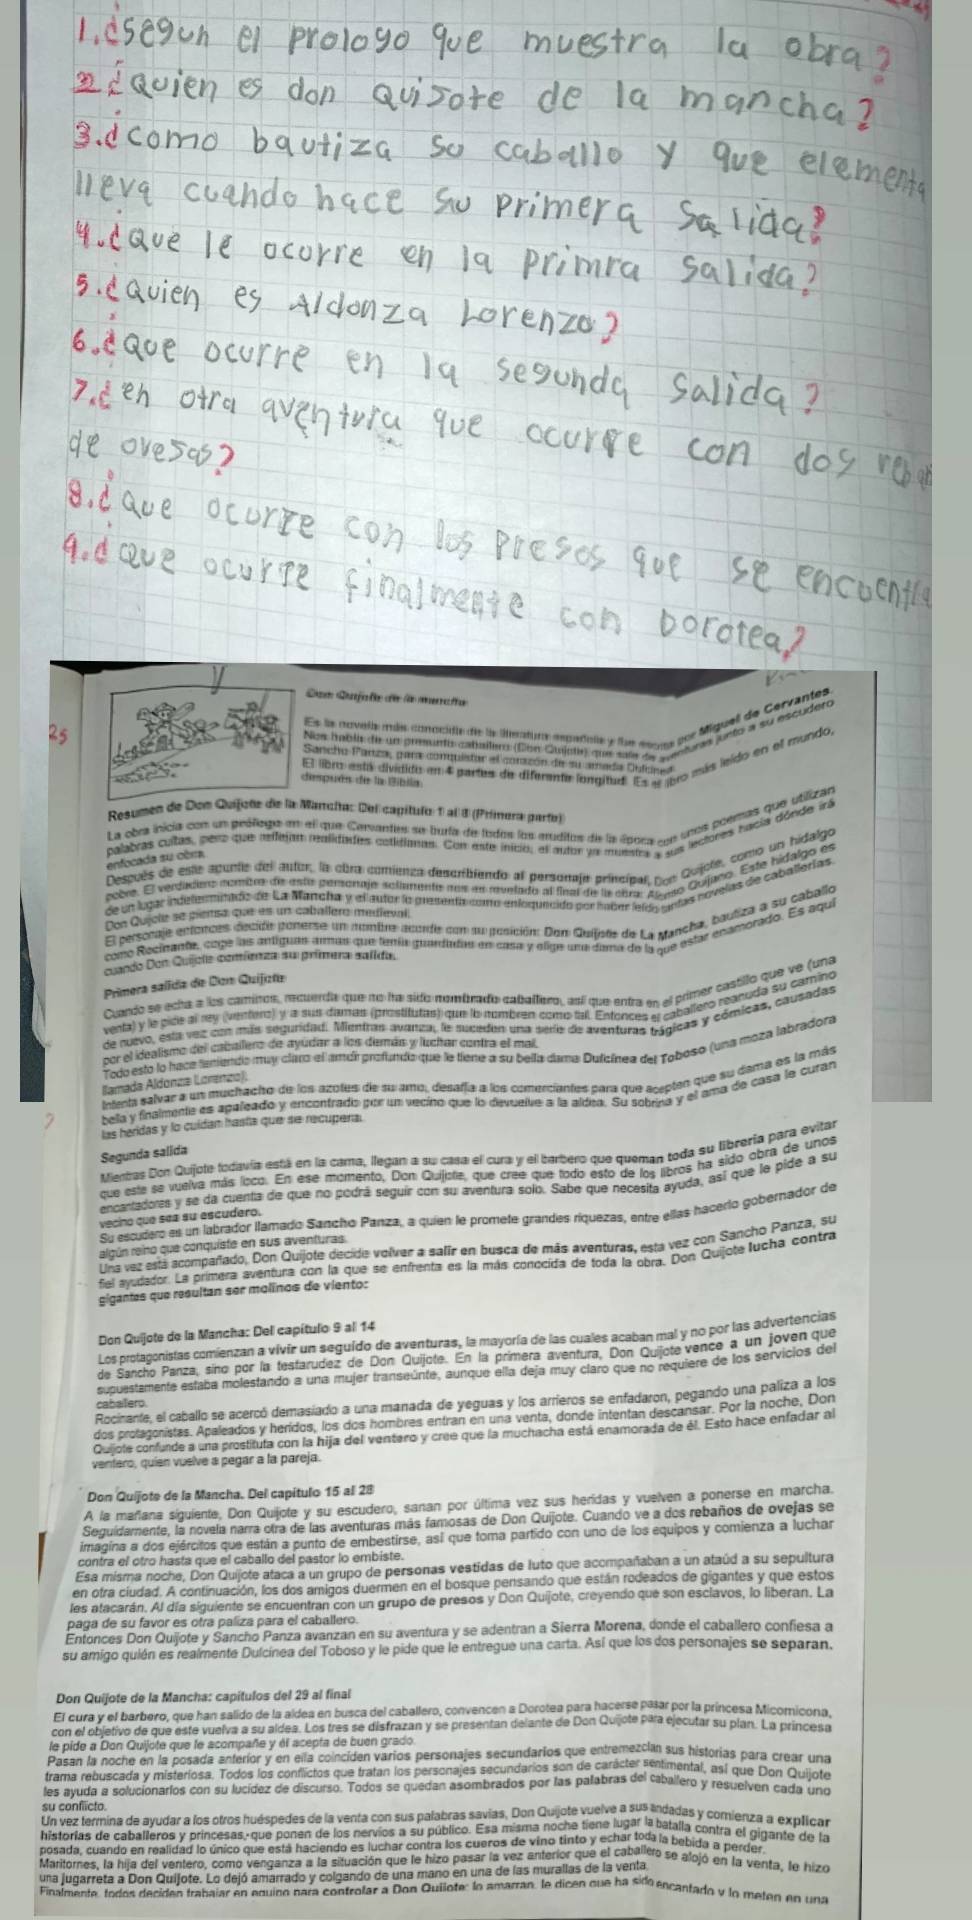 1.¿segun el prologo que muestra la obra?
2¿quien es don quisote de la mancha?
3.¿como bautiza su caballo y que elementa
lleva cuando hace su primera salida?
4.¿que le ocorre en la primra salida?
5.¿quien es Aldonza Lorenzo?
6.¿que ocurre en la segunda salida?
7.¿en otra aventura que ocurre con dos reban
de ovesas?
8.¿que ocurre con los presos que se encuentra
9.¿que ocurre finalmente con Dorotea?
25
Don Quijote de la mancha
Es la novela más conocida de la literatura española y fue escrita por Miguel de Cervantes.
Nos habla de un presunto caballero (Don Quijote) que sale de aventuras junto a su escudero
Sancho Panza, para conquistar el corazón de su amada Dulcinea.
El libro está dividido en 4 partes de diferente longitud. Es el libro más leído en el mundo,
después de la Biblia.
Resumen de Don Quijote de la Mancha: Del capítulo 1 al 8 (Primera parte)
La obra inicia con un prólogo en el que Cervantes se burla de todos los eruditos de la época con unos poemas que utilizan
palabras cultas, pero que reflejan realidades cotidianas. Con este inicio, el autor ya muestra a sus lectores hacia dónde irá
enfocada su obra.
Después de este apunte del autor, la obra comienza describiendo al personaje principal, Don Quijote, como un hidalgo
pobre. El verdadero nombre de este personaje solamente nos es revelado al final de la obra: Alonso Quijano. Este hidalgo es
de un lugar indeterminado de La Mancha y el autor lo presenta como enloquecido por haber leído tantas novelas de caballerías.
Don Quijote se piensa que es un caballero medieval.
El personaje entonces decide ponerse un nombre acorde con su posición: Don Quijote de La Mancha, bautiza a su caballo
como Rocinante, coge las antiguas armas que tenía guardadas en casa y elige una dama de la que estar enamorado. Es aquí
cuando Don Quijote comienza su primera salida.
Primera salida de Don Quijote
Cuando se echa a los caminos, recuerda que no ha sido nombrado caballero, así que entra en el primer castillo que ve (una
venta) y le pide al rey (ventero) y a sus damas (prostitutas) que lo nombren como tal. Entonces el caballero reanuda su camino
de nuevo, esta vez con más seguridad. Mientras avanza, le suceden una serie de aventuras trágicas y cómicas, causadas
por el idealismo del caballero de ayudar a los demás y luchar contra el mal.
Todo esto lo hace teniendo muy claro el amor profundo que le tiene a su bella dama Dulcinea del Toboso (una moza labradora
llamada Aldonza Lorenzo).
Intenta salvar a un muchacho de los azotes de su amo, desafía a los comerciantes para que acepten que su dama es la más
bella y finalmente es apaleado y encontrado por un vecino que lo devuelve a la aldea. Su sobrina y el ama de casa le curan
las heridas y lo cuidan hasta que se recupera.
Segunda salida
Mientras Don Quijote todavía está en la cama, llegan a su casa el cura y el barbero que queman toda su librería para evitar
que este se vuelva más loco. En ese momento, Don Quijote, que cree que todo esto de los libros ha sido obra de unos
encantadores y se da cuenta de que no podrá seguir con su aventura solo. Sabe que necesita ayuda, así que le pide a su
vecino que sea su escudero.
Su escudero es un labrador llamado Sancho Panza, a quien le promete grandes riquezas, entre ellas hacerlo gobernador de
algún reino que conquiste en sus aventuras.
Una vez está acompañado, Don Quijote decide volver a salir en busca de más aventuras, esta vez con Sancho Panza, su
fiel ayudador. La primera aventura con la que se enfrenta es la más conocida de toda la obra. Don Quijote lucha contra
gigantes que resultan ser molinos de viento:
Don Quijote de la Mancha: Del capítulo 9 al 14
Los protagonistas comienzan a vivir un seguido de aventuras, la mayoría de las cuales acaban mal y no por las advertencias
de Sancho Panza, sino por la testarudez de Don Quijote. En la primera aventura, Don Quijote vence a un joven que
supuestamente estaba molestando a una mujer transeúnte, aunque ella deja muy claro que no requiere de los servicios del
caballero.
Rocinante, el caballo se acercó demasiado a una manada de yeguas y los arrieros se enfadaron, pegando una paliza a los
dos protagonistas. Apaleados y heridos, los dos hombres entran en una venta, donde intentan descansar. Por la noche, Don
Quijote confunde a una prostituta con la hija del ventero y cree que la muchacha está enamorada de él. Esto hace enfadar al
ventero, quien vuelve a pegar a la pareja.
Don Quijote de la Mancha. Del capítulo 15 al 28
A la mañana siguiente, Don Quijote y su escudero, sanan por última vez sus heridas y vuelven a ponerse en marcha.
Seguidamente, la novela narra otra de las aventuras más famosas de Don Quijote. Cuando ve a dos rebaños de ovejas se
imagina a dos ejércitos que están a punto de embestirse, así que toma partido con uno de los equipos y comienza a luchar
contra el otro hasta que el caballo del pastor lo embiste.
Esa misma noche, Don Quijote ataca a un grupo de personas vestidas de luto que acompañaban a un ataúd a su sepultura
en otra ciudad. A continuación, los dos amigos duermen en el bosque pensando que están rodeados de gigantes y que estos
les atacarán. Al día siguiente se encuentran con un grupo de presos y Don Quijote, creyendo que son esclavos, lo liberan. La
paga de su favor es otra paliza para el caballero.
Entonces Don Quijote y Sancho Panza avanzan en su aventura y se adentran a Sierra Morena, donde el caballero confiesa a
su amigo quién es realmente Dulcinea del Toboso y le pide que le entregue una carta. Así que los dos personajes se separan.
Don Quijote de la Mancha: capítulos del 29 al final
El cura y el barbero, que han salido de la aldea en busca del caballero, convencen a Dorotea para hacerse pasar por la princesa Micomicona,
con el objetivo de que este vuelva a su aldea. Los tres se disfrazan y se presentan delante de Don Quijote para ejecutar su plan. La princesa
le pide a Don Quijote que le acompañe y él acepta de buen grado.
Pasan la noche en la posada anterior y en ella coinciden varios personajes secundarios que entremezclan sus historias para crear una
trama rebuscada y misteriosa. Todos los conflictos que tratan los personajes secundarios son de carácter sentimental, así que Don Quijote
les ayuda a solucionarlos con su lucidez de discurso. Todos se quedan asombrados por las palabras del caballero y resuelven cada uno
su conflicto.
Un vez termina de ayudar a los otros huéspedes de la venta con sus palabras savias, Don Quijote vuelve a sus andadas y comienza a explicar
historias de caballeros y princesas, que ponen de los nervios a su público. Esa misma noche tiene lugar la batalla contra el gigante de la
posada, cuando en realidad lo único que está haciendo es luchar contra los cueros de vino tinto y echar toda la bebida a perder.
Maritornes, la hija del ventero, como venganza a la situación que le hizo pasar la vez anterior que el caballero se alojó en la venta, le hizo
una jugarreta a Don Quijote. Lo dejó amarrado y colgando de una mano en una de las murallas de la venta.
Finalmente, todos deciden trabajar en equipo para controlar a Don Quijote: lo amarran, le dicen que ha sido encantado y lo meten en una